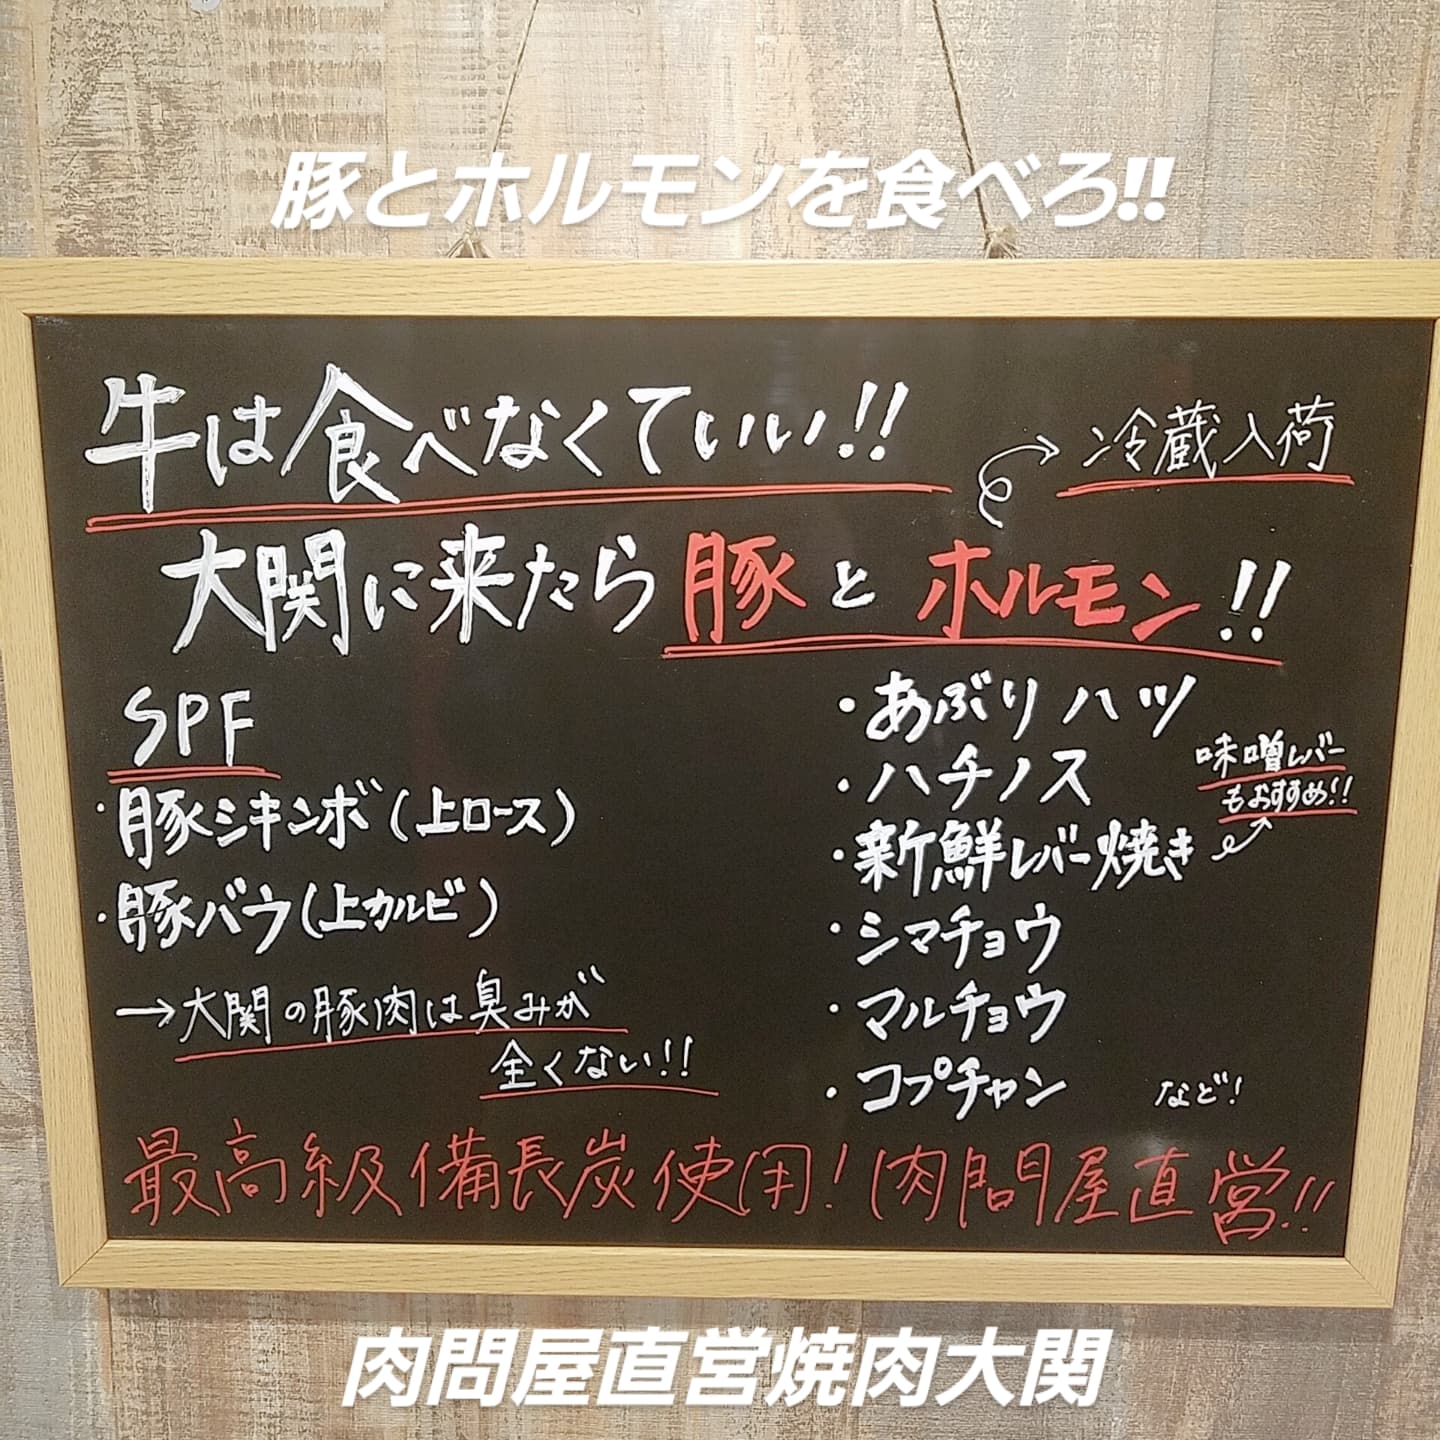 豚とホルモンを食べろ!!
牛は食べなくていい!!
冷蔵入荷
大関に来たら豚とホルモン!!
SPF
・豚シキンボ(上ロース)
・豚バラ(上カルビ)
→大関の豚肉は臭みが
全くない!!
・あぶりハツ
・ハチノス
味噌レバー
もおすすめ!!
・新鮮レバー焼き
・シマチョウ
・マルチョウ
・コプチャン
など!
最高級備長炭使用!肉問屋直営!!
肉問屋直営焼肉大関